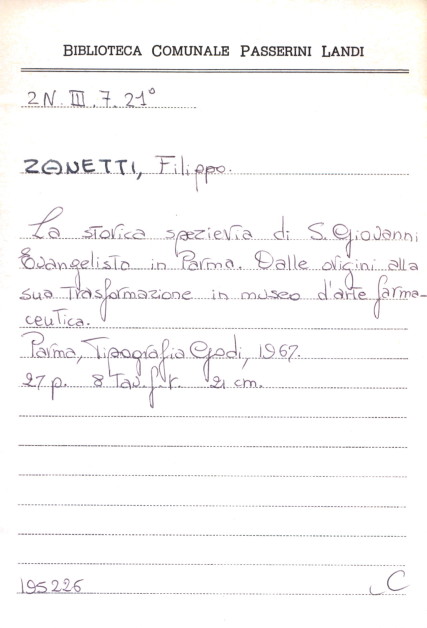 BIBLIOTECA COMUNALE PASSERINI LANDI
2N.III.7.21°
ZANETTI, Filippo.
La storica spezieria di S. Giovanni
Evangelista in Parma. Dalle origini alla
sua trasformazione in museo d'arte farma-
ceutica.
Parma, Tipografia Godi, 1967.
27 p. 8 Tav. f.t. 21 cm.
195226
C